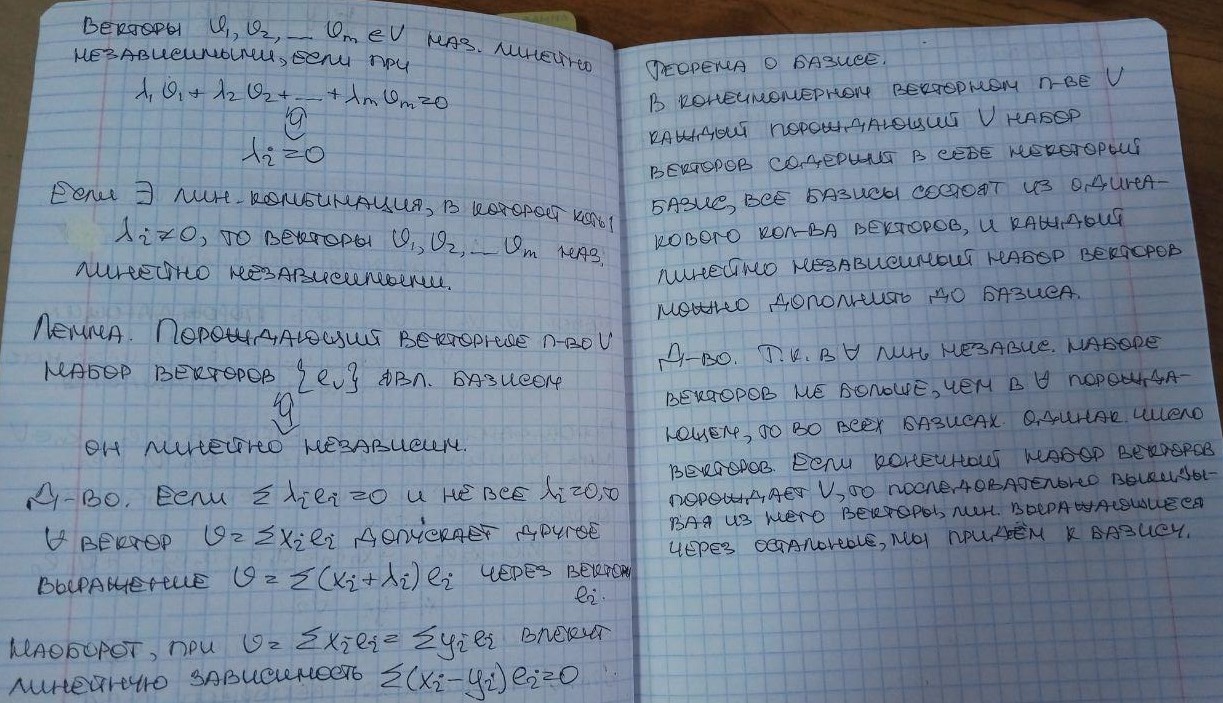 Векторы v₁, v₂, ... vₘ ∈ V наз. линейно
независимыми, если при
λ₁v₁ + λ₂v₂ + ... + λₘvₘ = 0
⇓
λᵢ = 0
Если ∃ лин. комбинация, в которой
λᵢ ≠ 0, то векторы v₁, v₂, ... vₘ наз.
линейно независимыми.
Лемма. Порождающий векторное п-во V
набор векторов {eᵥ} явл. базисом
он линейно независим.
Д-во. Если Σ λᵢeᵢ = 0 и не все λᵢ = 0, то
∀ вектор v = Σxᵢeᵢ допускает другое
выражение v = Σ(xᵢ + λᵢ)eᵢ через векторы
eᵢ.
Наоборот, при v = Σxᵢeᵢ = Σyᵢeᵢ влекут
линейную зависимость Σ(xᵢ - yᵢ)eᵢ = 0
Теорема о базисе.
В конечномерном векторном п-ве V
каждый порождающий V набор
векторов содержит в себе некоторый
базис, все базисы состоят из одина-
кового кол-ва векторов, и каждый
линейно независимый набор векторов
можно дополнить до базиса.
Д-во. Т.к. в ∀ лин. независ. наборе
векторов не больше, чем в ∀ порожда-
ющем, то во всех базисах одинак. число
векторов. Если конечный набор векторов
порождает V, то последовательно выкиды-
вая из него векторы, лин. выражающиеся
через остальные, мы придём к базису.